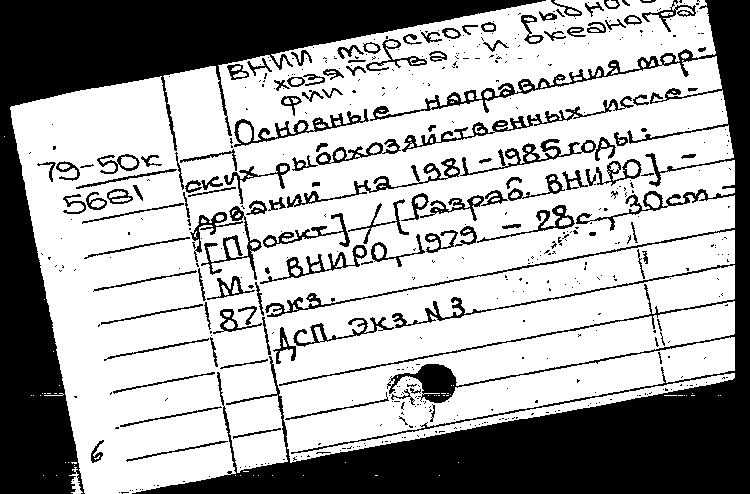 ВНИИ морского рыбного
хозяйства и океаногра-
фии.
Основные направления мор-
ских рыбохозяйственных иссле-
дований на 1981-1985 годы:
[Проект] / [Разраб. ВНИРО]. –
М.: ВНИРО, 1979. – 28с.; 30см.–
87 экз.
ДСП. Экз. N 3.
79-50к
5681
6